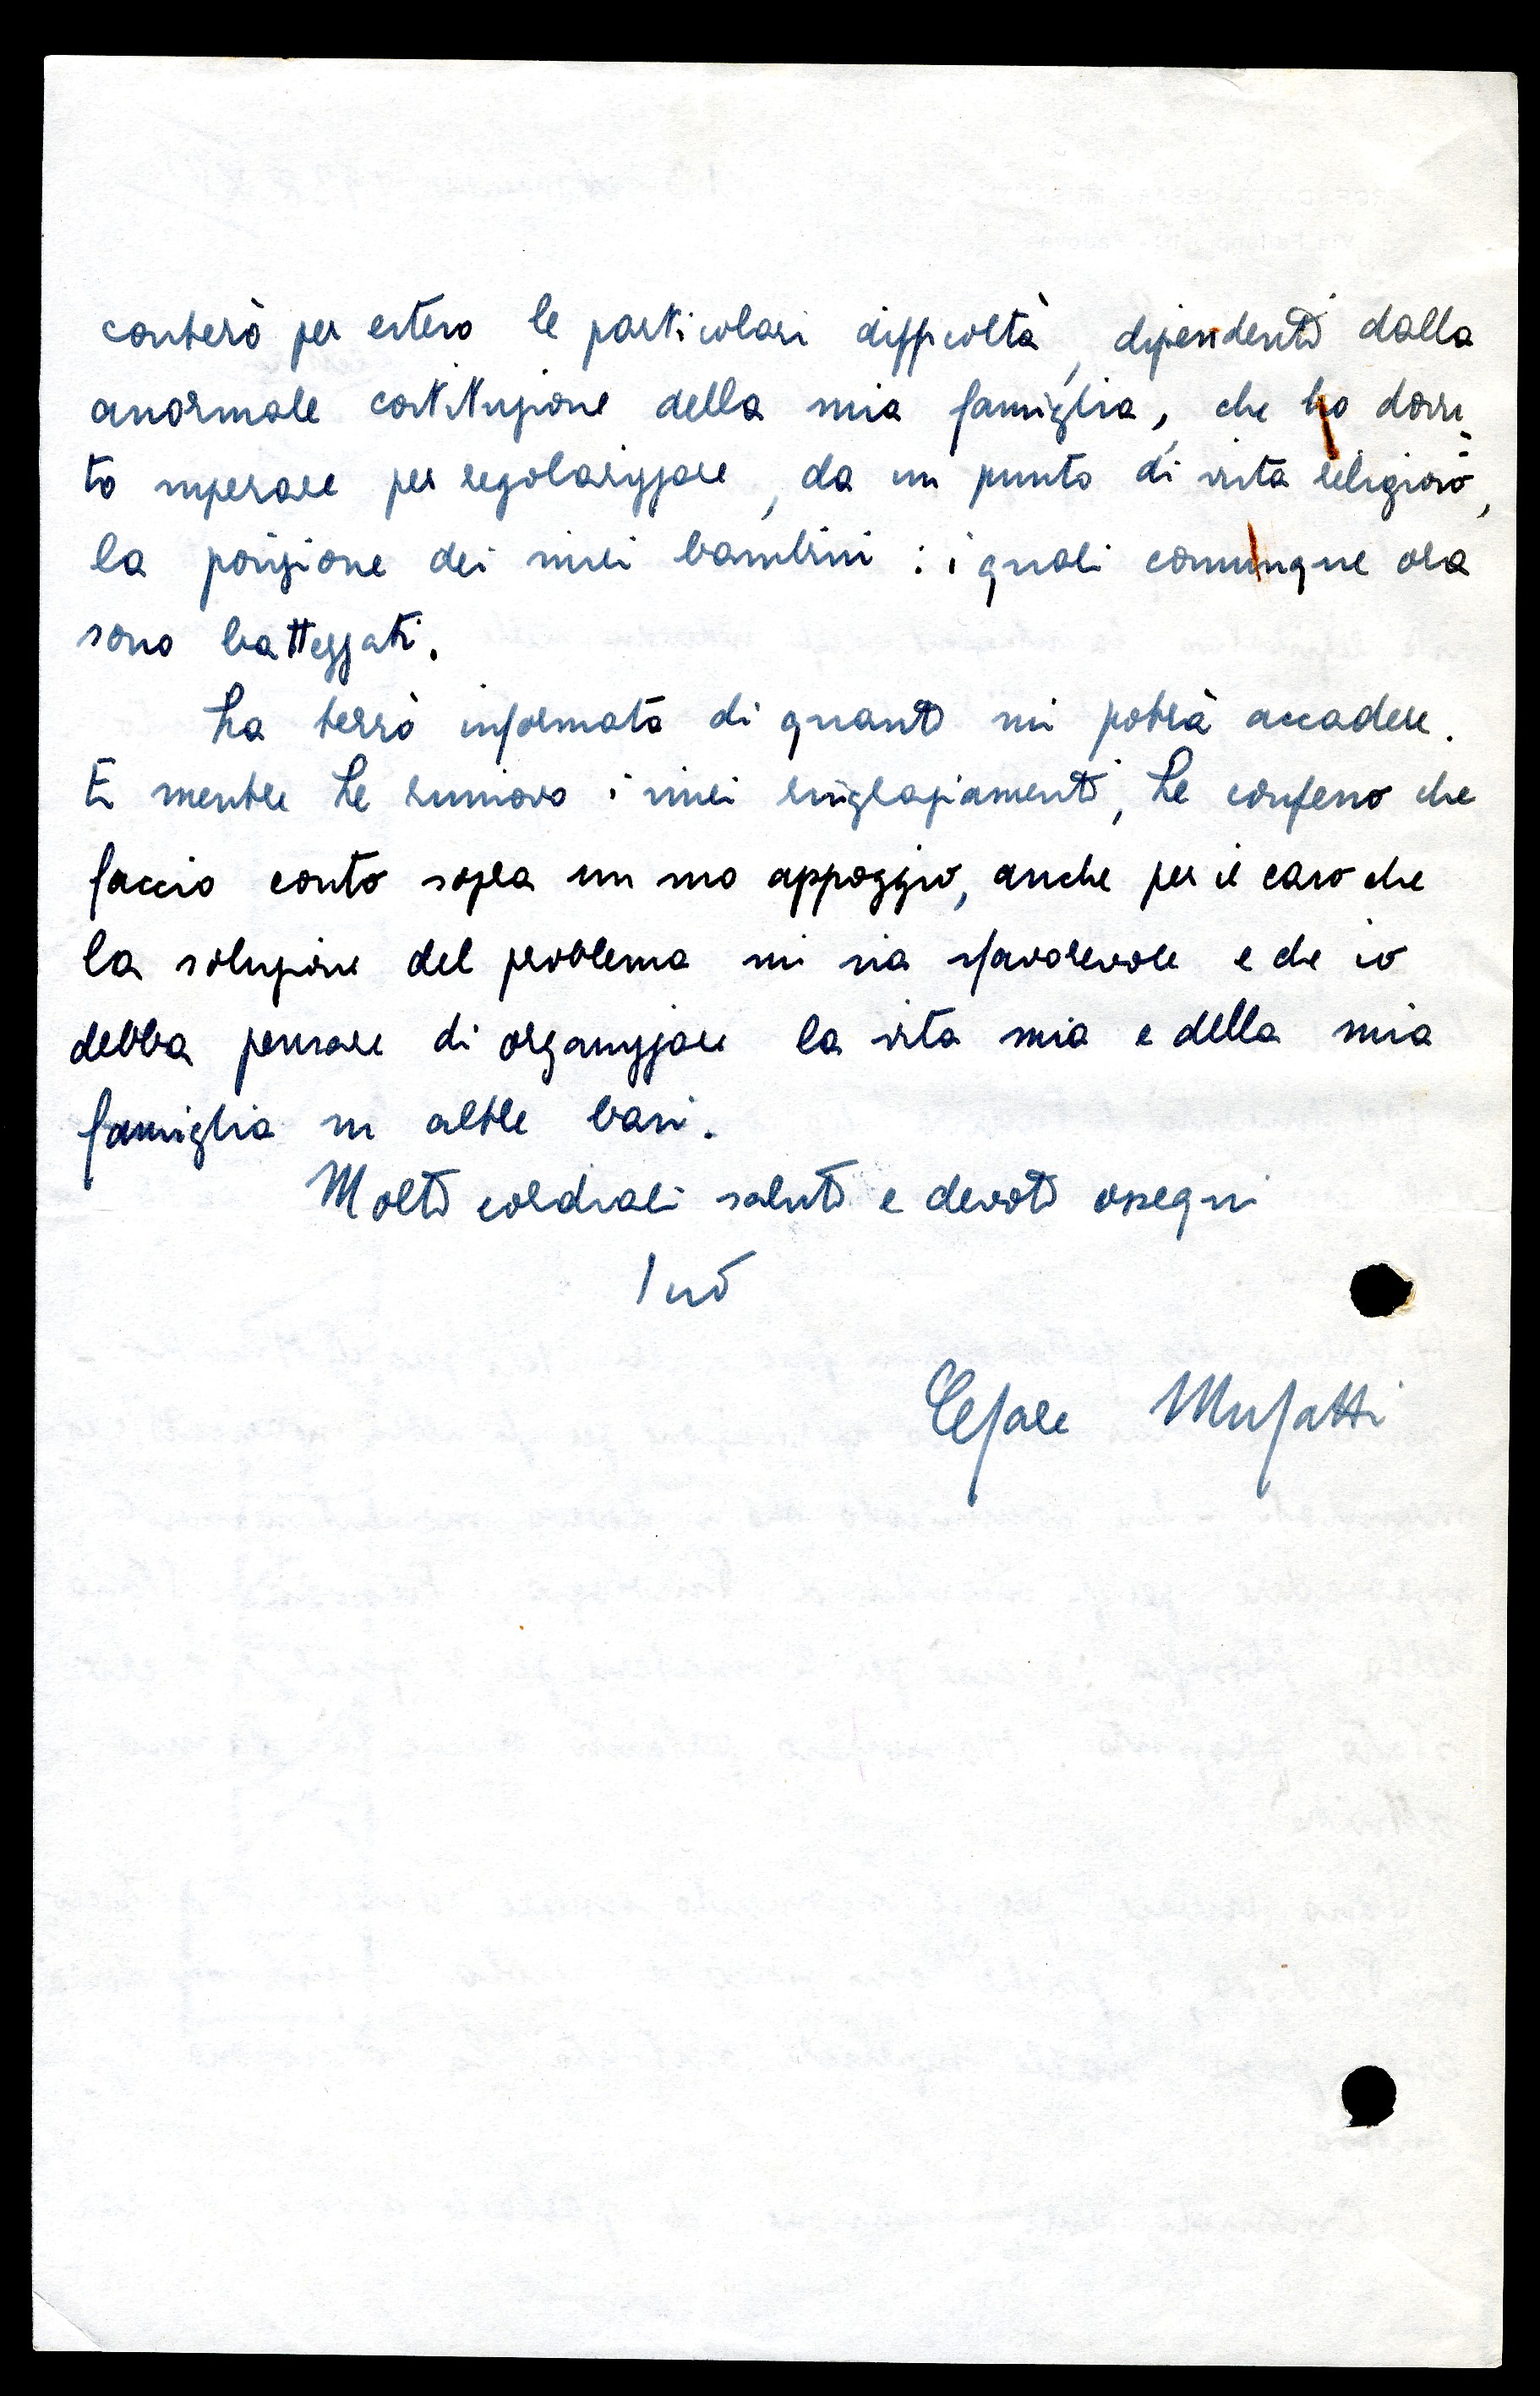 conterò per esteso le particolari difficoltà, dipendenti dalla
anormale costituzione della mia famiglia, che ho dovu-
to superare per regolarizzare, da un punto di vista religioso,
la posizione dei miei bambini: i quali comunque ora
sono battezzati.
La terrò informata di quanto mi potrà accadere.
E mentre Le rinnovo i miei ringraziamenti, Le confesso che
faccio conto sopra un suo appoggio, anche per il caso che
la soluzione del problema mi sia sfavorevole e che io
debba pensare di organizzare la vita mia e della mia
famiglia su altre basi.
Molti cordiali saluti e devoti ossequi
Suo
Cesare Musatti